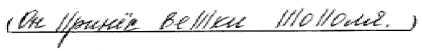 (Он принёс ветки тополя.)